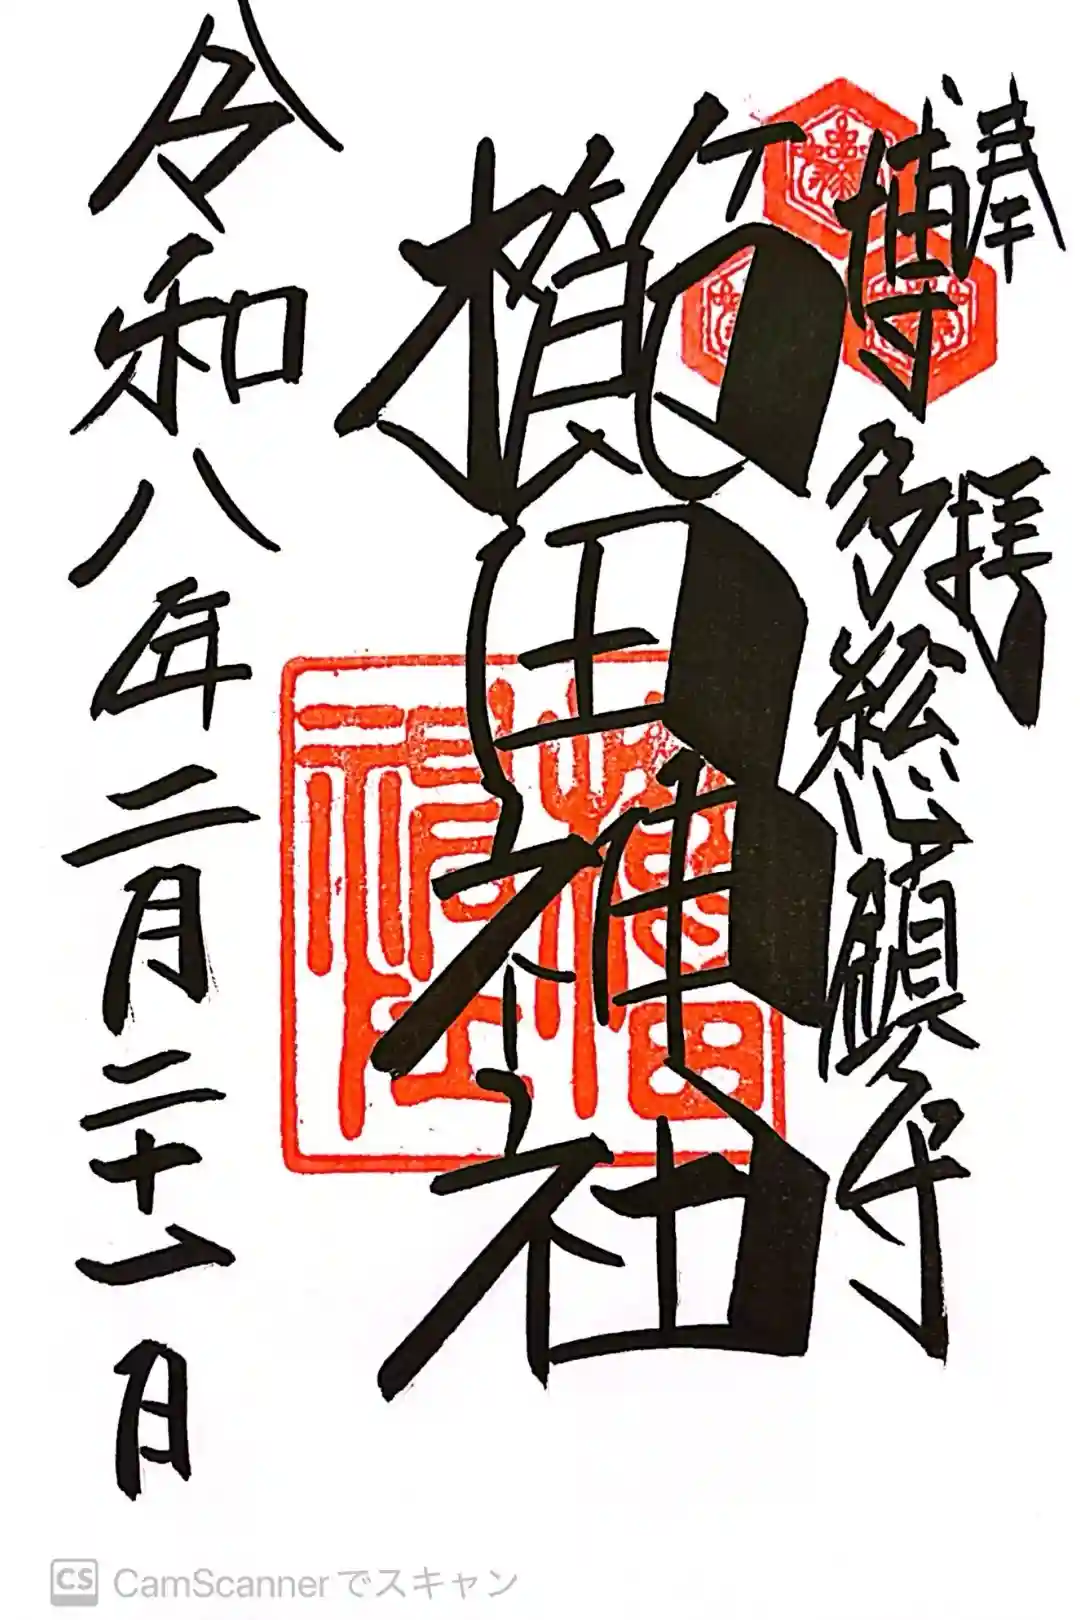 奉拝
博多総鎮守
櫛田神社
櫛田神社
令和八年二月二十一日
CS CamScannerでスキャン